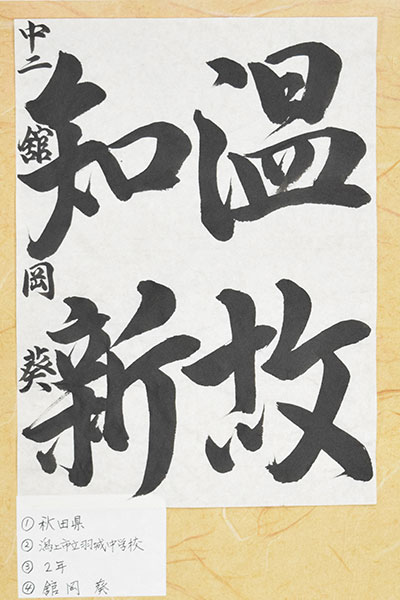 温故
知新
中二 舘岡 葵
① 秋田県
② 潟上市立羽城中学校
③ 2年
④ 舘岡 葵